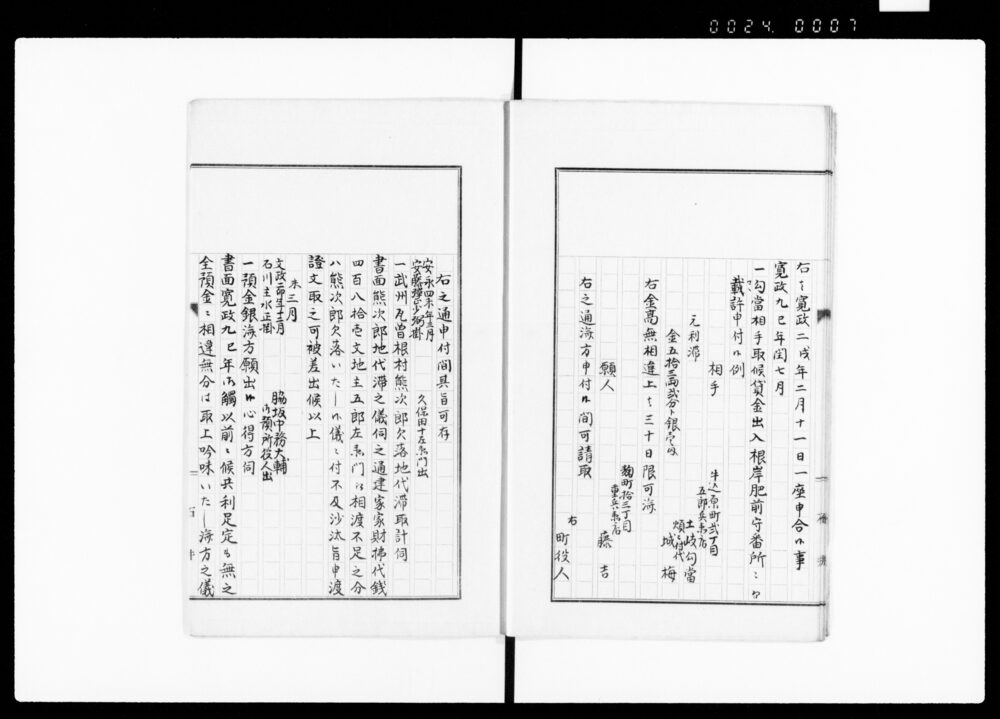 0024. 0007
右ハ寛政二戌年二月十一日一座申合候事
寛政九巳年閏七月
一勾當相手取候貸金出入根岸肥前守番所ニ而
裁許申付候例
牛込原町弐丁目
五郎兵衛店
土岐勾當
煩ニ付代
相手 城梅
元利滞
金五拾三両弐分ト銀壱匁
右金高無相違上ハ三十日限可済
麹町拾三丁目
重兵衛店
願人 藤吉
右之通済方申付候間可請取
右
町役人
右之通申付間其旨可存
安永四未年五月
安藤弾正少弼掛
久保田十左衛門出
一武州瓦曾根村熊次郎欠落地代滞取計伺
書面熊次郎地代滞之儀伺之通建家家財拂代銭
四百八拾壱文地主五郎左衛門江相渡不足之分
ハ熊次郎欠落いたし候儀ニ付不及沙汰旨申渡
證文取之可被差出候以上
未三月
文政二卯年十二月
石川主水正掛
脇坂中務大輔
御預所役人出
一預金銀済方願出候心得方伺
書面寛政九巳年御觸以前ニ候共利足定も無之
全預金ニ相違無分は取上吟味いたし済方之儀